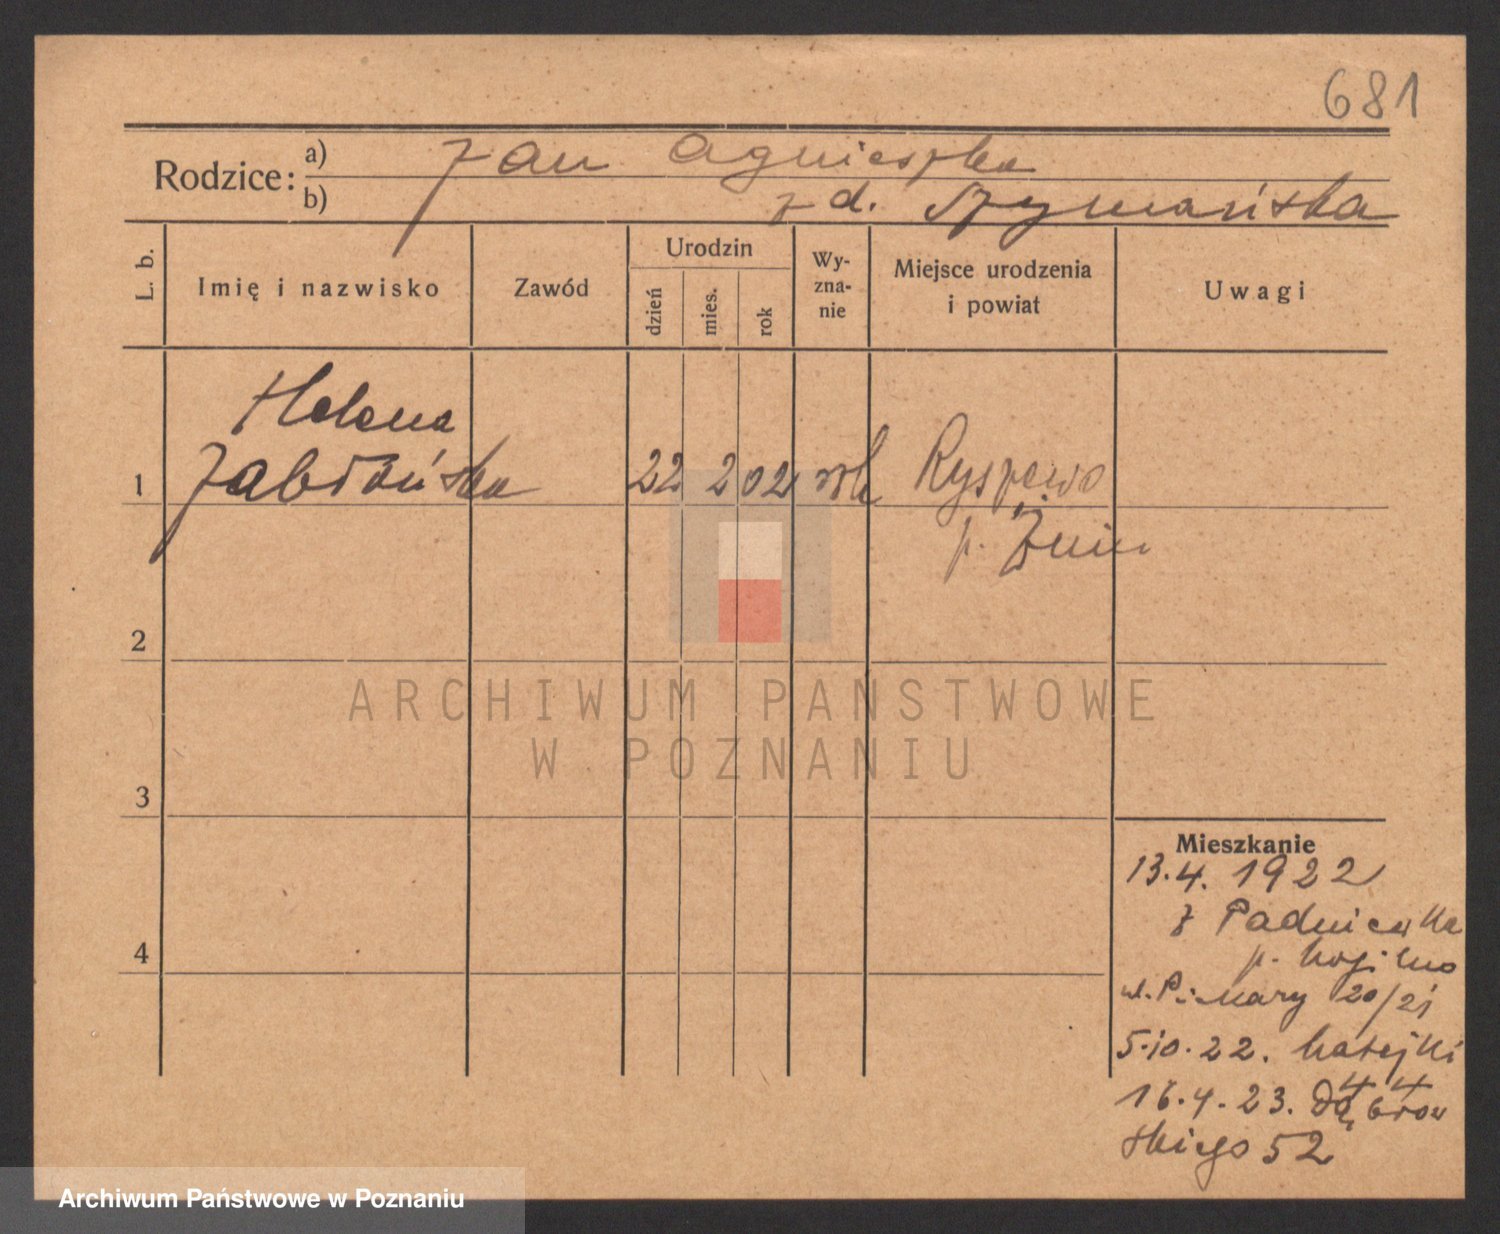 681
Rodzice: a) Jan Agnieszka
b) z d. Szymańska
L. b.
Imię i nazwisko
Zawód
Urodzin
dzień
mies.
rok
Wy-
zna-
nie
Miejsce urodzenia
i powiat
Uwagi
Helena
1 Jabłońska 22 2 02 Ryszewo
p. Żnin
2
ARCHIWUM PAŃSTWOWE
W POZNANIU
3
Mieszkanie
13.4.1922
z Padniewka
4
p. Mogilno
ul. P. Mary 20/21
5.10.22. Matejki
44
16.4.23. Dąbrow
skiego 52
Archiwum Państwowe w Poznaniu